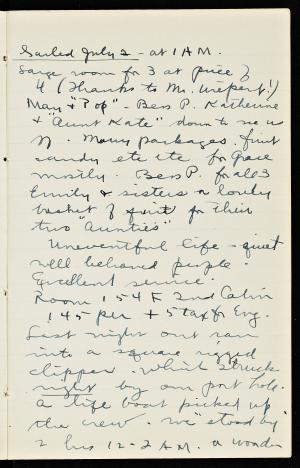 Sailed July 2 - at 1 A.M.
Large room for 3 at price of
4 (Thanks to Mr. !)
May & "Pop" - Bess P. Katherine
& "Aunt Kate" down to see us
off. Many packages. fruit
candy etc etc for Grace
mostly. Bess P. for all 3
Emily & sisters a lovely
basket of fruit for their
two "Aunties"
Uneventful life - quiet
well behaved people.
Excellent service.
Room 154 F 2nd Cabin
145 per + 5 tax for Eng.
Last night out ran
into a square rigged
clipper. which struck
right by our port hole.
a life boat picked up
the crew. we "stood by"
2 hrs 12-2 A.M. a wonder